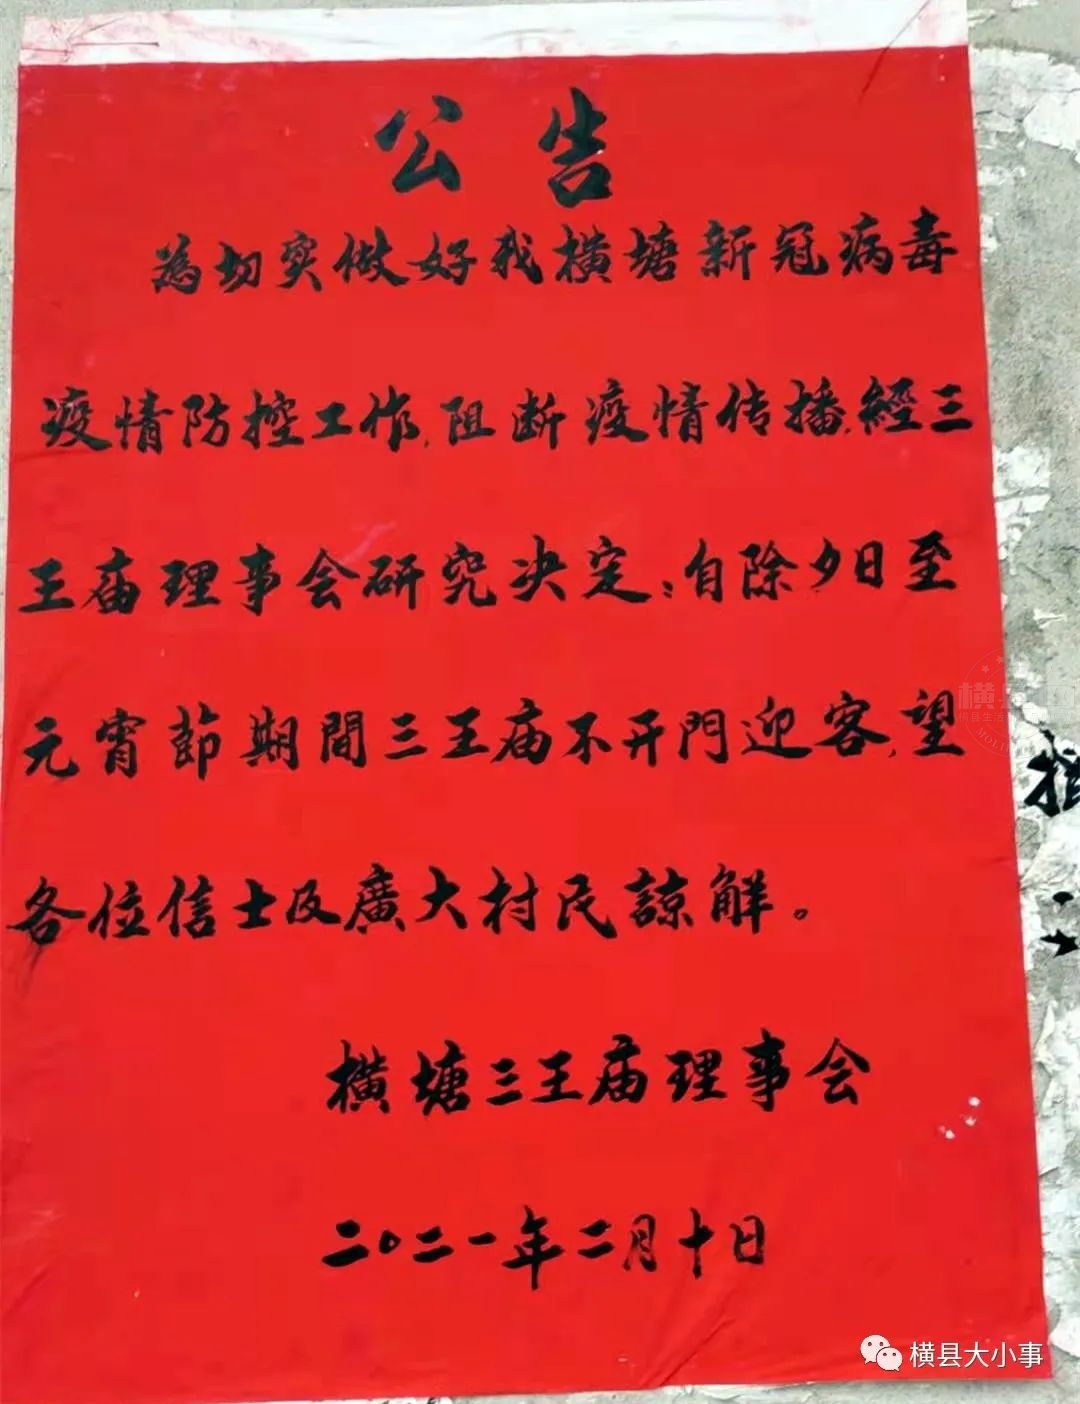 公告
為切实做好我横塘新冠病毒
疫情防控工作,阻断疫情传播,經三
王庙理事会研究决定:自除夕日至
元宵節期間三王庙不开門迎客,望
各位信士及廣大村民諒解。
横塘三王庙理事会
二〇二一年二月十日
横县大小事